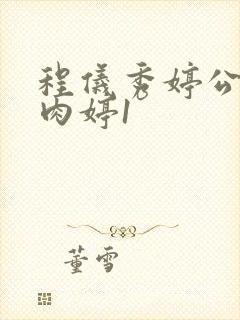 程仪秀婷公
肉婷1
董雪